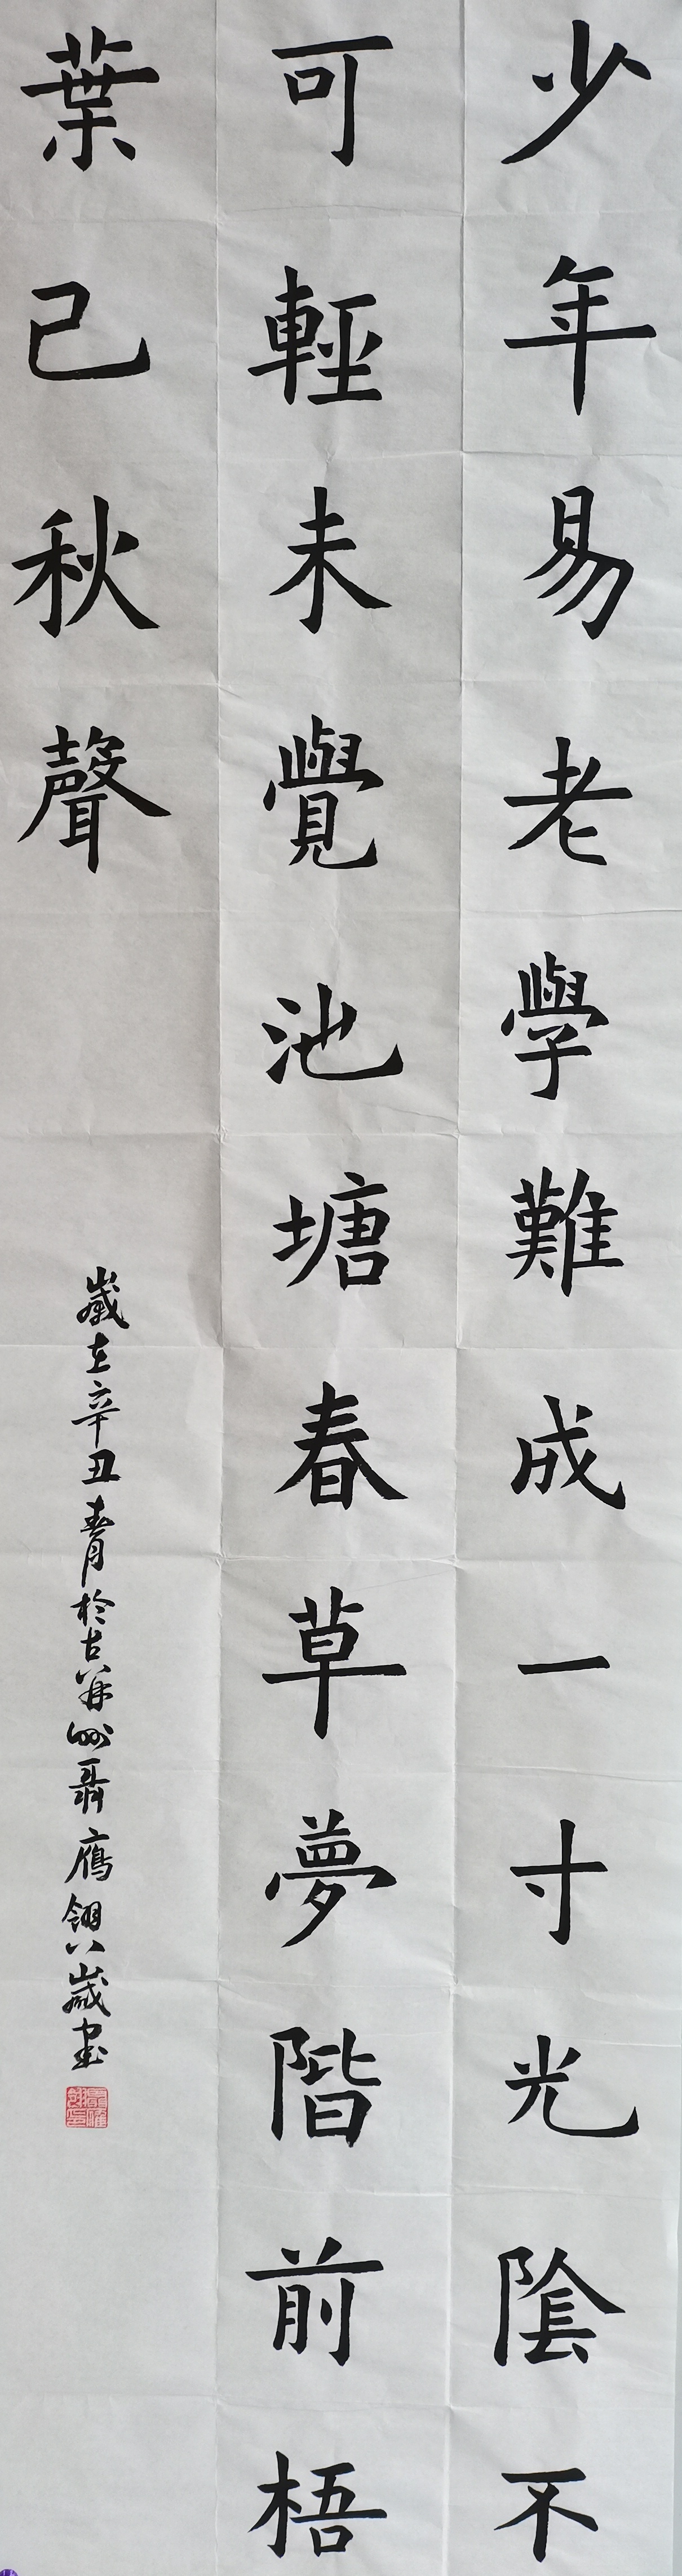 少年易老學難成一寸光陰不
可輕未覺池塘春草夢階前梧
葉已秋聲
歲在辛丑春月於古并州聶鴈翎八歲書